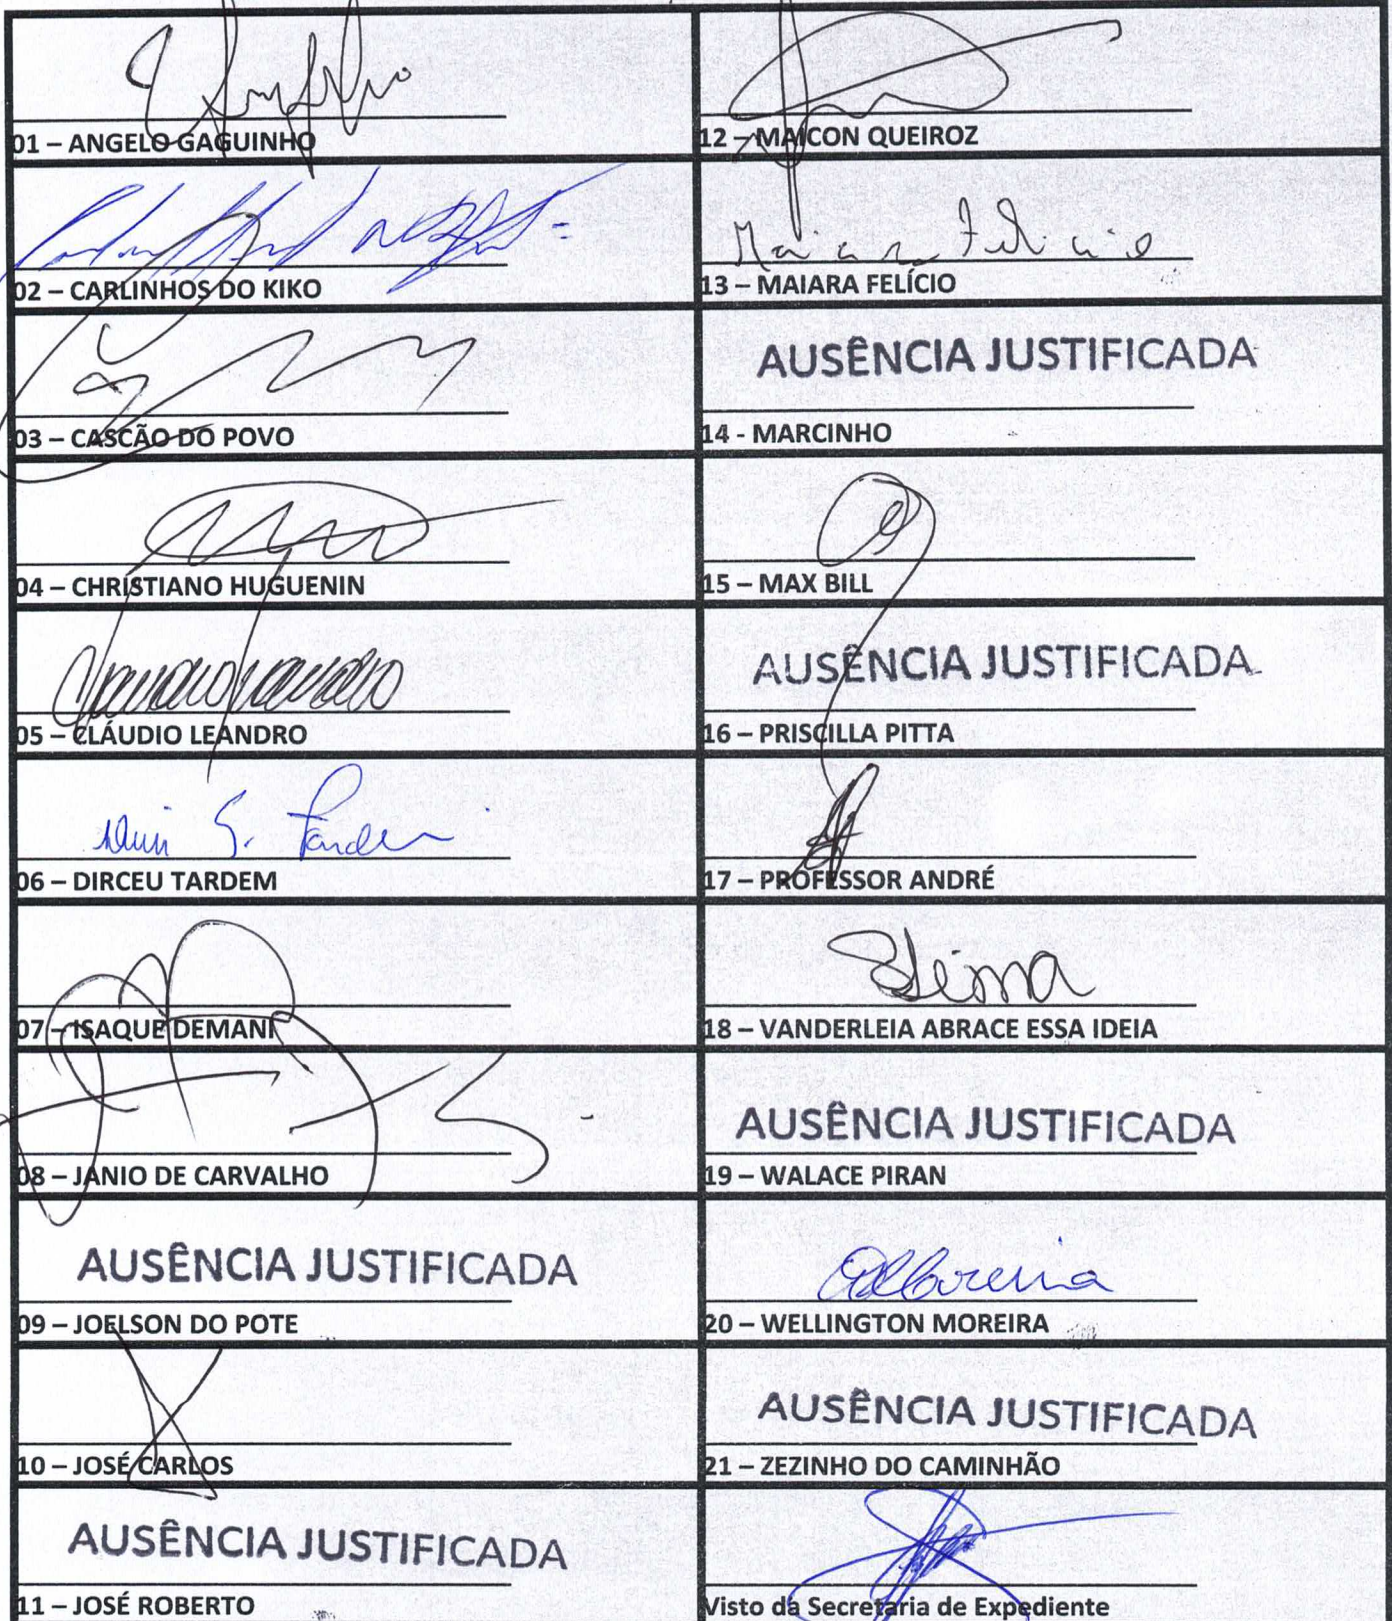 01 – ANGELO GAGUINHO
02 – CARLINHOS DO KIKO
03 – CASCÃO DO POVO
04 – CHRISTIANO HUGUENIN
05 – CLÁUDIO LEANDRO
06 – DIRCEU TARDEM
07 – ISAQUE DEMANI
08 – JANIO DE CARVALHO
AUSÊNCIA JUSTIFICADA
09 – JOELSON DO POTE
10 – JOSÉ CARLOS
AUSÊNCIA JUSTIFICADA
11 – JOSÉ ROBERTO
12 – MAICON QUEIROZ
Maiara Felicio
13 – MAIARA FELÍCIO
AUSÊNCIA JUSTIFICADA
14 - MARCINHO
15 – MAX BILL
AUSÊNCIA JUSTIFICADA
16 – PRISCILLA PITTA
17 – PROFESSOR ANDRÉ
18 – VANDERLEIA ABRACE ESSA IDEIA
AUSÊNCIA JUSTIFICADA
19 – WALACE PIRAN
20 – WELLINGTON MOREIRA
AUSÊNCIA JUSTIFICADA
21 – ZEZINHO DO CAMINHÃO
Visto da Secretaria de Expediente